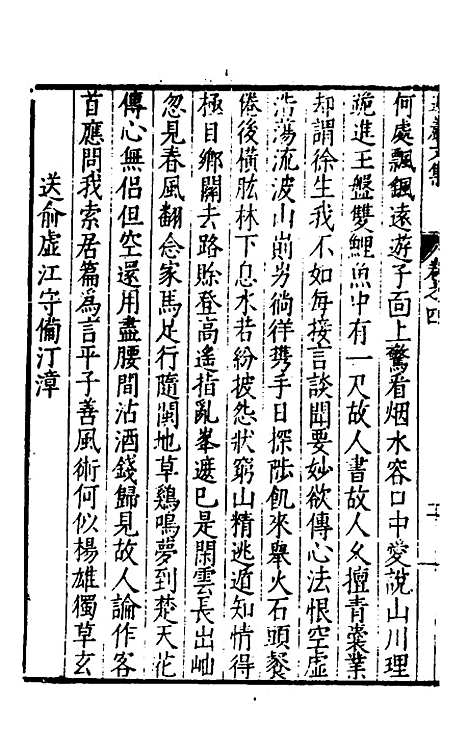 何處飄颻遠遊子面上驚看烟水容口中愛說山川理
跪進玉盤雙鯉魚中有一尺故人書故人久擅青囊業
却謂徐生我不如每接言談聞要妙欲傳心法恨空虛
浩蕩流波山崱屴徜徉携手日探陟飢來舉火石頭餐
倦後橫肱林下息水若紛披怨狀窮山精逃遁知情得
極目鄉關去路賒登高遙指亂峯遮已是閑雲長出岫
忽見春風翻念家馬足行隨閩地草鷄鳴夢到楚天花
傳心無侶但空還用盡腰間沽酒錢歸見故人論作客
首應問我索居篇為言平子善風術何似楊雄獨草玄
送俞虛江守備汀漳
文集
卷之四